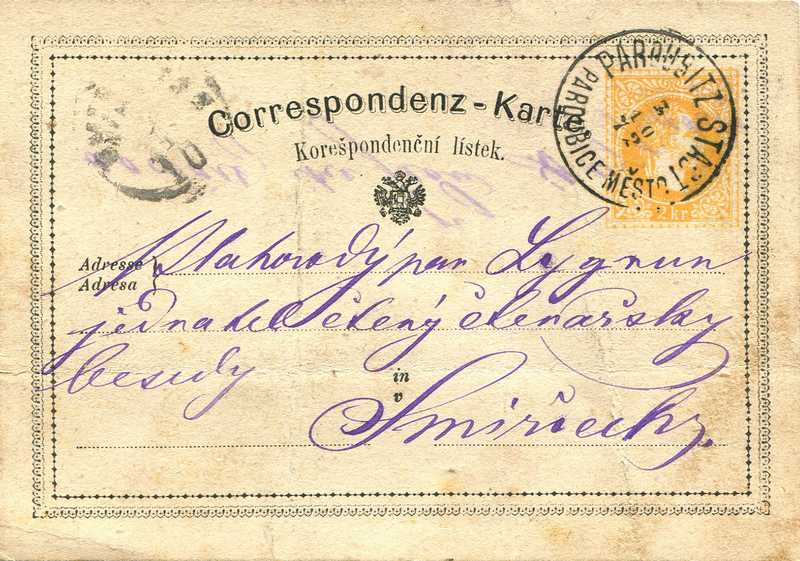 Correspondenz-Karte.
Korešpondenční lístek.
PARDUBITZ STADT
PARDUBICE MĚSTO
2 kr
Adresse
Adresa
Blahorodý pan Lygrun
jednatel čtený čtenařsky
besedy
in
v
Smiřicich.